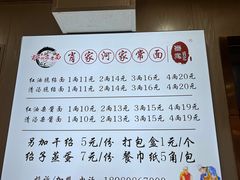 肖家河家常面
红油脆绍面 1两11元 2两14元 3两16元 4两20元
清汤脆绍面 1两11元 2两14元 3两16元 4两20元
红油杂酱面 1两10元 2两13元 3两15元 4两19元
清汤杂酱面 1两10元 2两13元 3两15元 4两19元
另加干绍 5元/份 打包盒1元/个
绍子蒸蛋 7元/份 餐巾纸5角/包